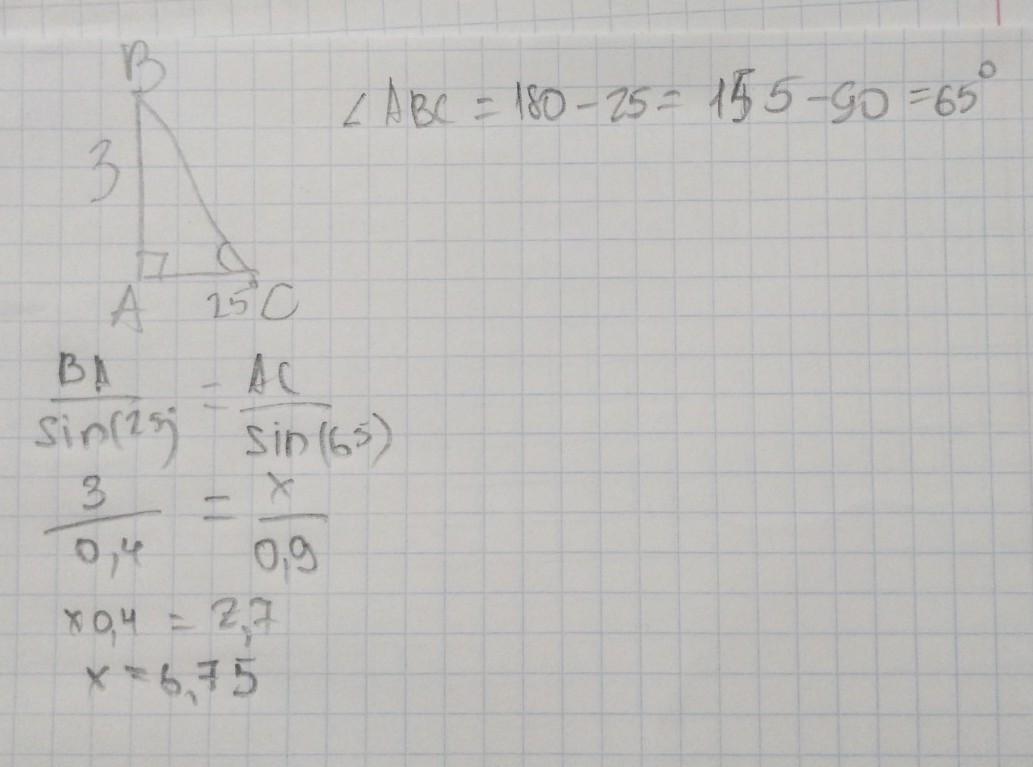 B
∠ABC = 180 - 25 = 155 - 90 = 65°
3
A 25° C
BA/sin(25) = AC/sin(65)
3/0,4 = x/0,9
x0,4 = 2,7
x = 6,75